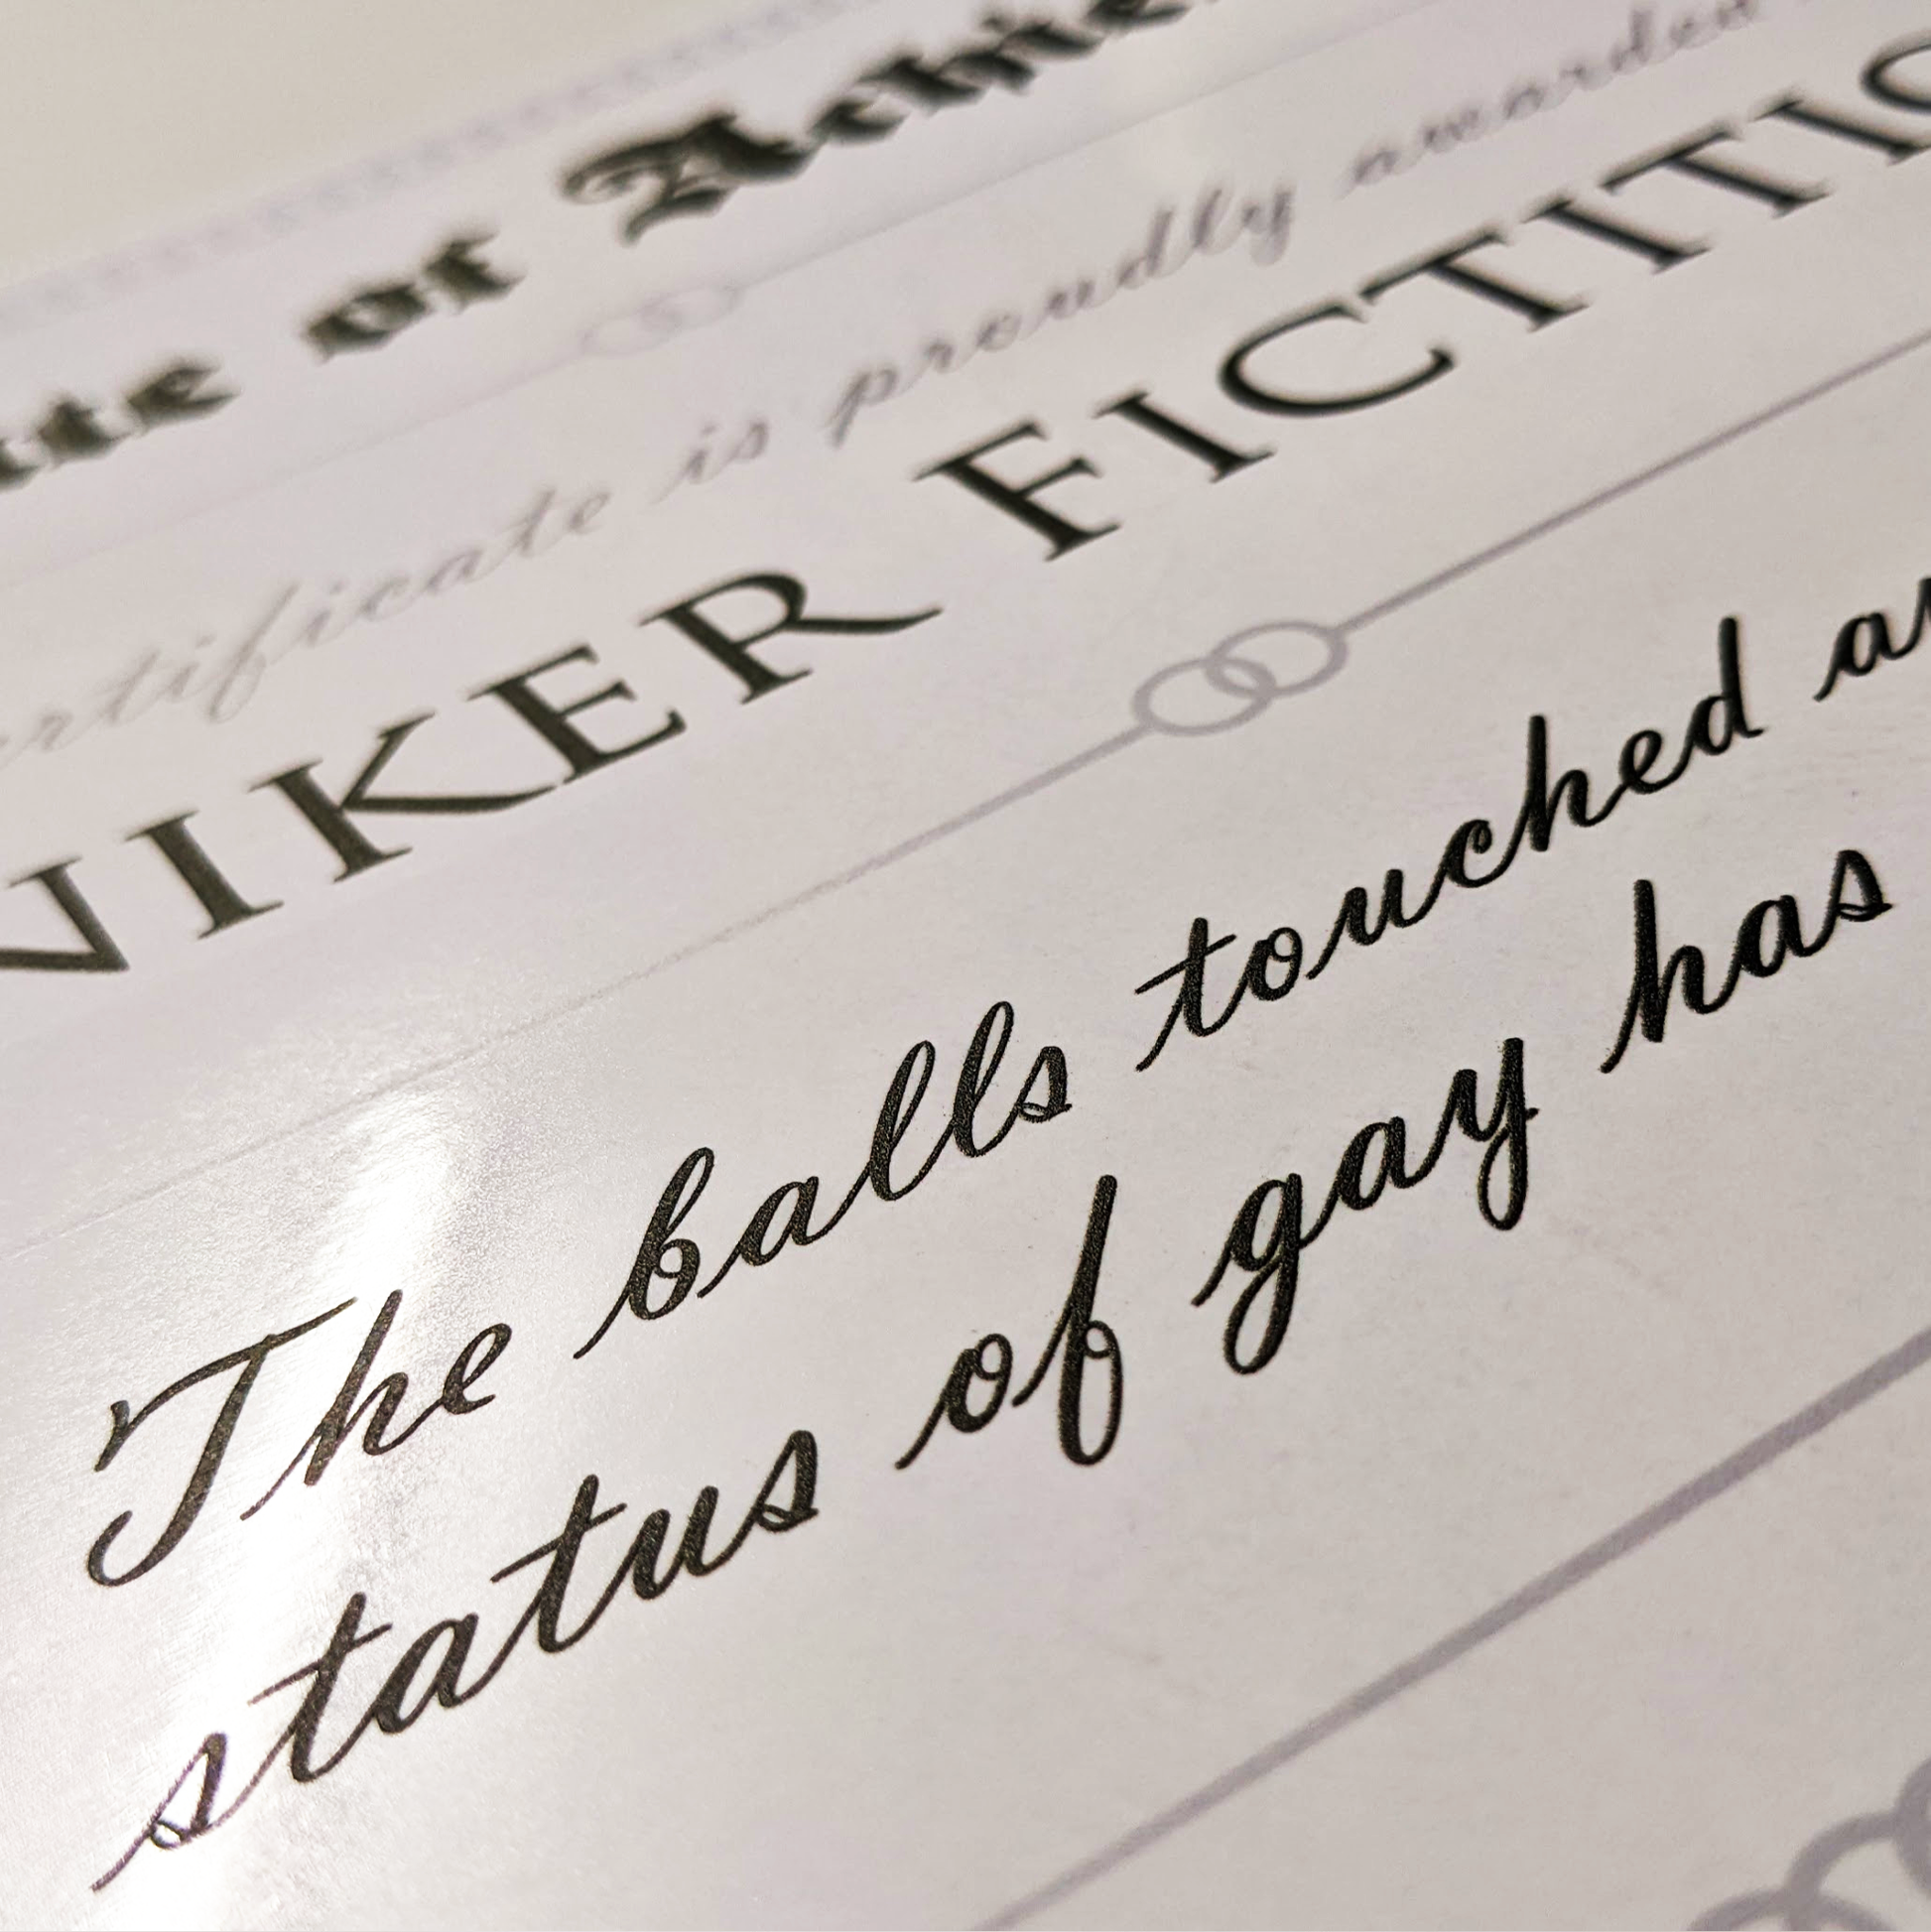 of
certificate is proudly awarded
FICTITIO
The balls touched
status of gay has